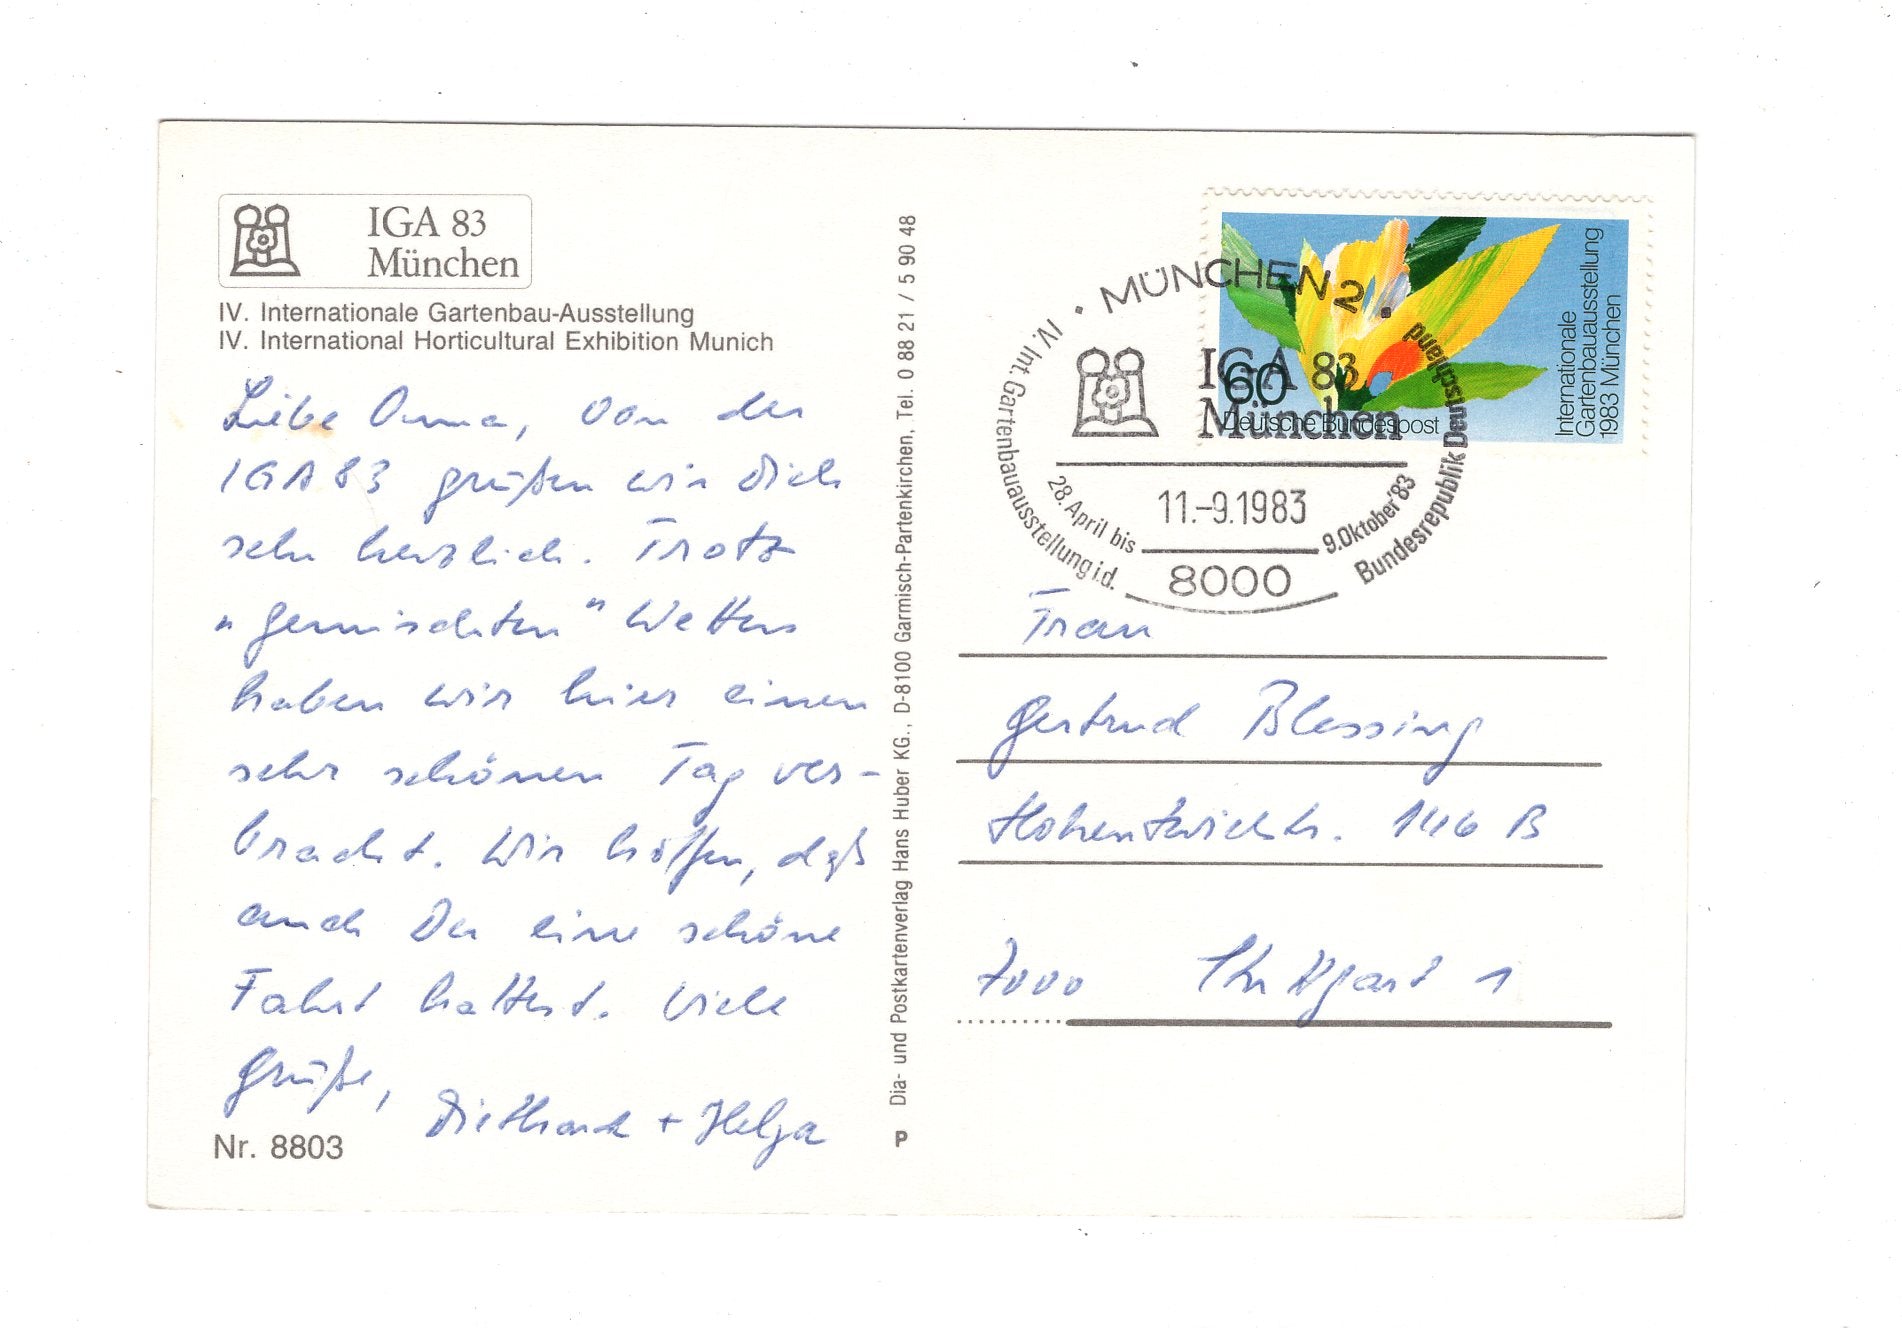 IGA 83
München
IV. Internationale Gartenbau-Ausstellung
IV. International Horticultural Exhibition Munich
Liebe Omma, von der
IGA 83 grüßen wir Dich
sehr herzlich. Trotz
"gemischten" Wetters
haben wir hier einen
sehr schönen Tag ver-
bracht. Wir hoffen, daß
auch Du eine schöne
Fahrt hattest. Viele
Grüße,
Diethard + Helga
Nr. 8803
Dia- und Postkartenverlag Hans Huber KG., D-8100 Garmisch-Partenkirchen, Tel. 0 88 21 / 5 90 48
P
60
Deutsche Bundespost
Internationale
Gartenbauausstellung
1983 München
· MÜNCHEN 2 ·
IV. Int. Gartenbauausstellung i.d.
Bundesrepublik Deutschland
IGA 83
München
28. April bis
9. Oktober '83
11.-9.1983
8000
Frau
Gertrud Blessing
Hohentwielstr. 146 B
7000 Stuttgart 1